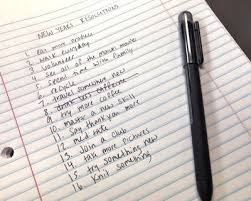 NEW YEARS RESOLUTIONS
1. eat more produce
2. walk everyday
3. volunteer
4. see all of the movies
5. spend time with family
6. recycle
7. travel somewhere new
8. drink less caffeine
9. try more coffee
10. master a new skill
11. say thank you more
12. meditate
13. Join a club
14. talk more pictures
15. try something new
16. Knit something